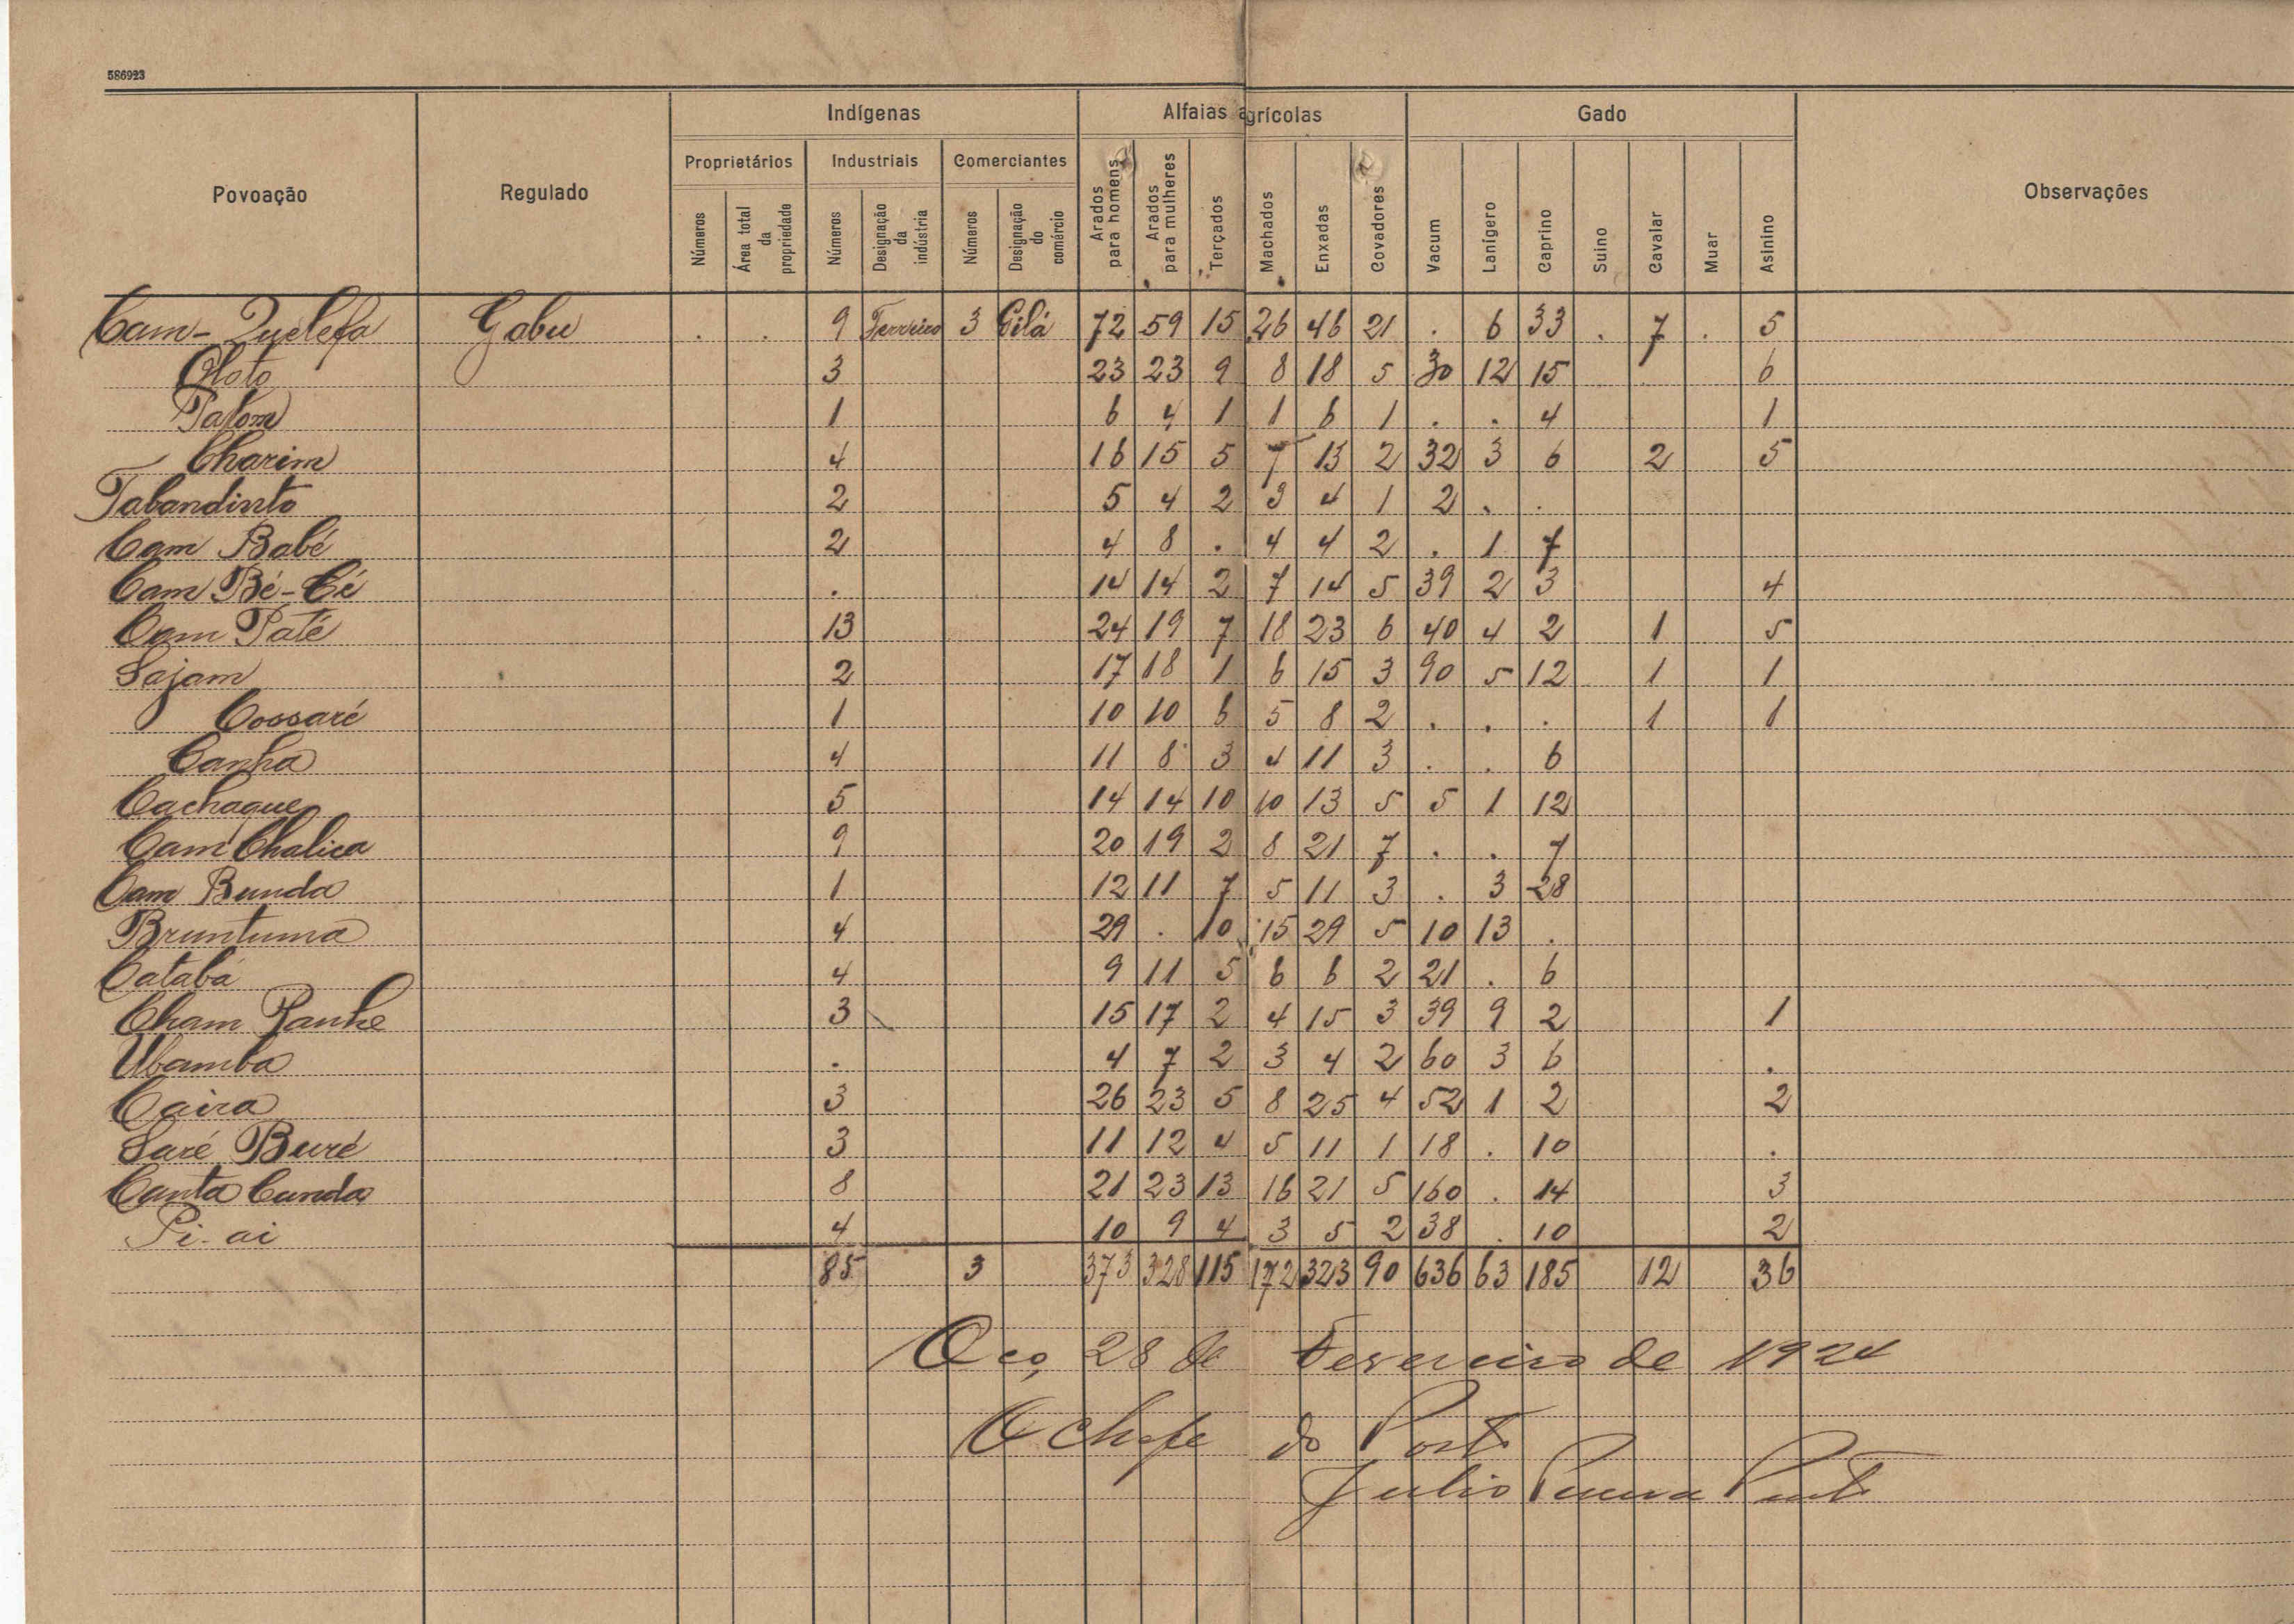 586923
Povoação Regulado Indígenas Alfaias agrícolas Gado Observações
Proprietários Industriais Comerciantes
Números Área total da propriedade Números Designação da indústria Números Designação do comércio Arados para homens Arados para mulheres Terçados Machados Enxadas Covadores Vacum Lanígero Caprino Suino Cavalar Muar Asinino
Cam-Quelefa Gabu . . 9 Ferreiro 3 Gilá 72 59 15 26 46 21 . 6 33 . 7 . 5
Oloto 3 23 23 9 8 18 5 30 12 15 6
Patom 1 6 4 1 1 6 1 . . 4 1
Charim 4 16 15 5 7 13 2 32 3 6 2 5
Tabandinto 2 5 4 2 3 4 1 2 . .
Cam Babé 2 4 8 . 4 4 2 . 1 7
Cam Bé-Cé . 14 14 2 7 14 5 39 2 3 4
Cam Paté 13 24 19 7 18 23 6 40 4 2 1 5
Sajam 2 17 18 1 6 15 3 90 5 12 1 1
Cossaré 1 10 10 6 5 8 2 . . . 1 1
Canha 4 11 8 3 4 11 3 . . 6
Cachaque 5 14 14 10 10 13 5 5 1 12
Cam Chalica 9 20 19 2 8 21 7 . . 7
Cam Bunda 1 12 11 7 5 11 3 . 3 28
Bruntuma 4 29 . 10 15 29 5 10 13 .
Catabá 4 9 11 5 6 6 2 21 . 6
Cham Panhe 3 15 17 2 4 15 3 39 9 2 1
Ubamba . 4 7 2 3 4 2 60 3 6 .
Caira 3 26 23 5 8 25 4 52 1 2 2
Saré Buré 3 11 12 4 5 11 1 18 . 10 .
Canta Cunda 8 21 23 13 16 21 5 160 . 14 3
Pi-ai 4 10 9 4 3 5 2 38 . 10 2
85 3 373 328 115 172 323 90 636 63 185 12 36
Oco, 28 de Fevereiro de 1924
O Chefe do Posto
Julio Pinto